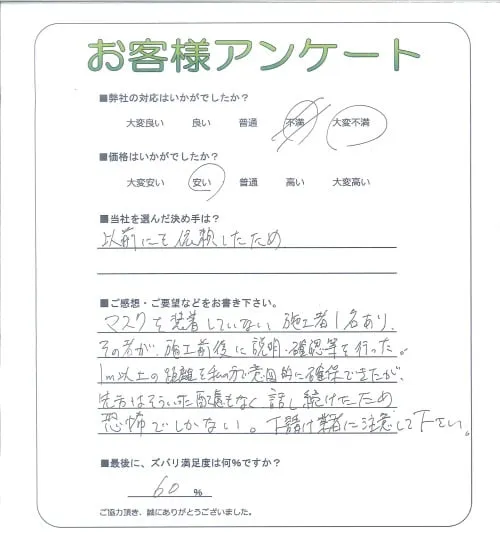 お客様アンケート
■弊社の対応はいかがでしたか？
大変良い 良い 普通 不満 大変不満
■価格はいかがでしたか？
大変安い 安い 普通 高い 大変高い
■当社を選んだ決め手は？
以前にも依頼したため
■ご感想・ご要望などをお書き下さい。
マスクを装着していない施工者1名あり、
その者が、施工前後に説明・確認等を行った。
1m以上の距離を私の方で意図的に確保できたが、
先方はそういった配慮もなく話し続けたため
恐怖でしかない。下請け業者に注意して下さい。
■最後に、ズバリ満足度は何%ですか？
60 %
ご協力頂き、誠にありがとうございました。